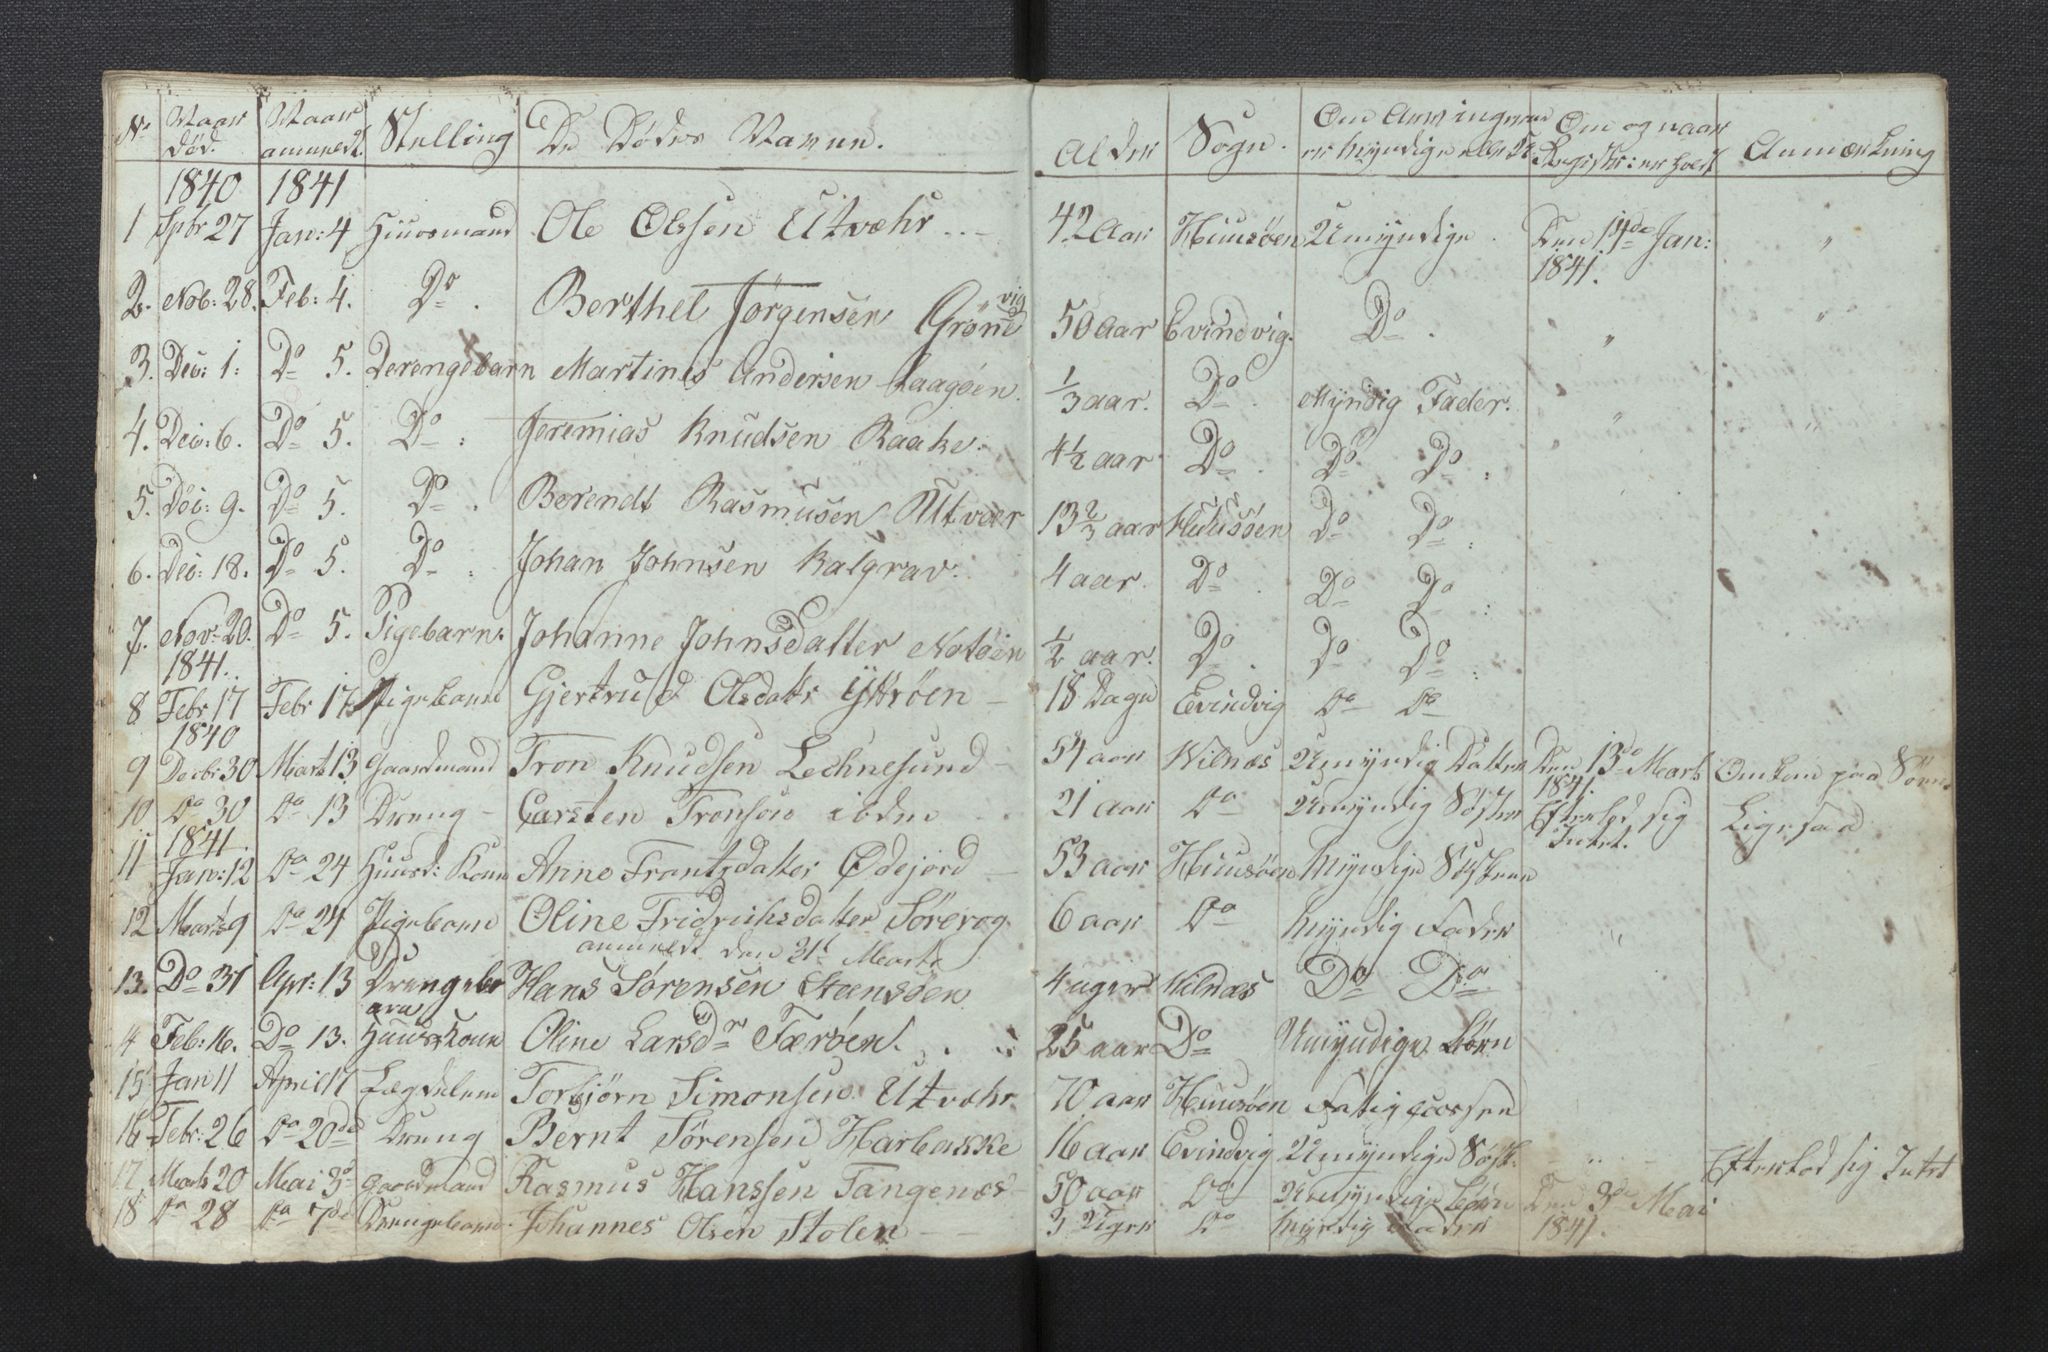 No Naar død. Naar anmeldt Stilling De Dødes Navne. Alder Sogn. Om Arvingerne er Myndige eller U. Om og naar Registr: er holdt Anmærkning
1840 1841
1 Spbr 27 Jan: 4 Huusmand Ole Olssen Utvæhr 42 Aar Huusøen Umyndige Den 14de Jan: 1841. "
2. Nob: 28. Feb: 4. Do. Berthel Jørgensen Grønevig 50 aar Evindvig. Do. " "
3. Dec: 1: Do 5. Derengebarn Martines Andersen Laagøen. 1/3 aar. Do. Myndig Fader. "
4. Dec: 6. Do 5. Do: Jeremias Knudsen Raake. 4 1/2 aar Do. Do Do: "
5. Dec: 9. Do 5. Do. Berendt Rasmusen Utvær 13 2/3 aar Huusøen Do Do:
6. Dec: 18. Do 5. Do: Johan Johnsen Kalgrav. 4 aar. Do. Do Do:
7. Nov: 20. Do 5. Pigebarn. Johanne Johnsdatter Notøen 1/2 aar. Do. Do Do:
1841.
8 Febr 17 Febr 17 Pigebarn Gjertrud Olsdatr Yttrøen 18 Dage Evindvig Do Do
1840
9 Decbr 30 Marts 13 Gaardmand Tron Knudsen Lechnesund 54 aar Wilnæs Umyndig Datter Den 13de Marts 1841. Omkom paa Søen
10 Do 30 Do 13 Dreng - Carsten Tronsen ibdm 21 aar Do Umyndig Søster Efterlod sig Intet. Ligesaa
1841.
11 Jan: 12 Do 24 Huusm: Kone Anne Frantzdatter Ødejord 53 aar Huusøen Myndige Søstre
12 Marts 9 Do 24 Pigebarn Oline Fridrichsdatter Sørevog 6 aar Do Myndig Fader "
anmeldt den 31t Marts
13. Do 31 Apr: 13 Drengebarn Hans Sørensen Stensøen 4 uger Wilnæs Do Do.
4 Feb: 16. Do 13. Huuskone Oline Larsdr Færøen. 25 aar Do Umyndige Børn
15 Jan 11 April 17 Lægdslem Torbjørn Simonsen Utvæhr 70 aar Huusøen Fatigcassen
16 Febr: 26 Do 20de Dreng Bernt Sørensen Harbakke 16 aar Evindvig Umyndige Søsk: - " - Efterlod sig Intet
17 Marts 20 Mai 3de Gaardmand Rasmus Hanssen Tangenæs 50 aar Do Umyndige Børn Den 3de Mai 1841.
18 Do 28 Do 7de Drengebarn. Johannes Olsen Stolen 3 Uger Do Myndig Fader